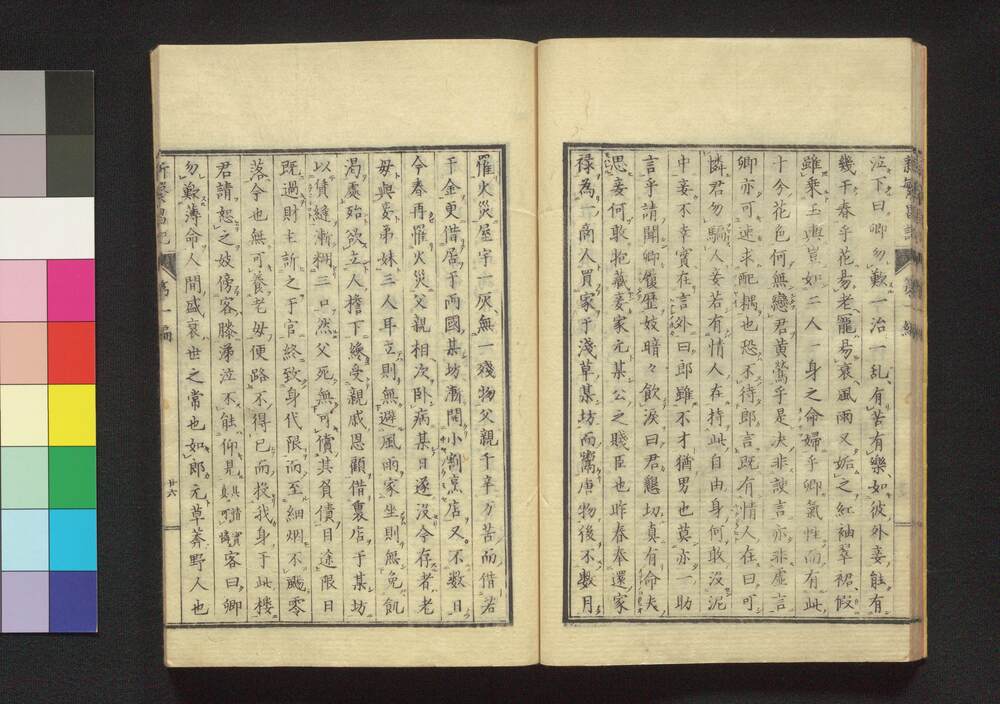 泣下曰卿勿歎一治一乱有苦有樂如彼外妾能有
幾千春乎花易老寵易衰風雨又妬之紅袖翠裙假
雖乗玉輿豈如二人一身之命婦乎卿氣性而有此
十分花色何無戀君黄鶯乎是决非諛言亦非虚言
卿亦可速求配耦也恐不待郎言既有情人在曰可
憐君勿騙人妾若有情人在持此自由身何敢没泥
中妾不幸實在言外曰郎雖不才猶男也莫亦一助
言乎請聞卿履歴妓暗々飲涙曰君懇切真有命夫
思妾何敢抱藏妾家元某公之賤臣也昨春奉還家
禄為一商人買家于淺草某坊而鬻唐物後不數月
罹火災屋宇一灰無一殘物父親千辛万苦而借若
干金更借居于両國某坊漸開小割烹店又不數日
今春再罹火災父親相次卧病某日遂没今存者老
母與妾弟妹三人耳立則無避風雨家坐則無免飢
渇處殆欲立人檐下纔受親戚恩顧借裏店于某坊
以賃縫漸糊三口然父死無可償其負債目途限日
既過財主訴之于官終致身代限而至細烟不颺零
落今也無可養老母便路不得已而投我身于此樓
君請恕之妓傍客滕涕泣不能仰見其情實真可憐客曰卿
勿歎薄命人間盛衰世之常也如郎元草莽野人也
新繁昌記 第一編 廿六